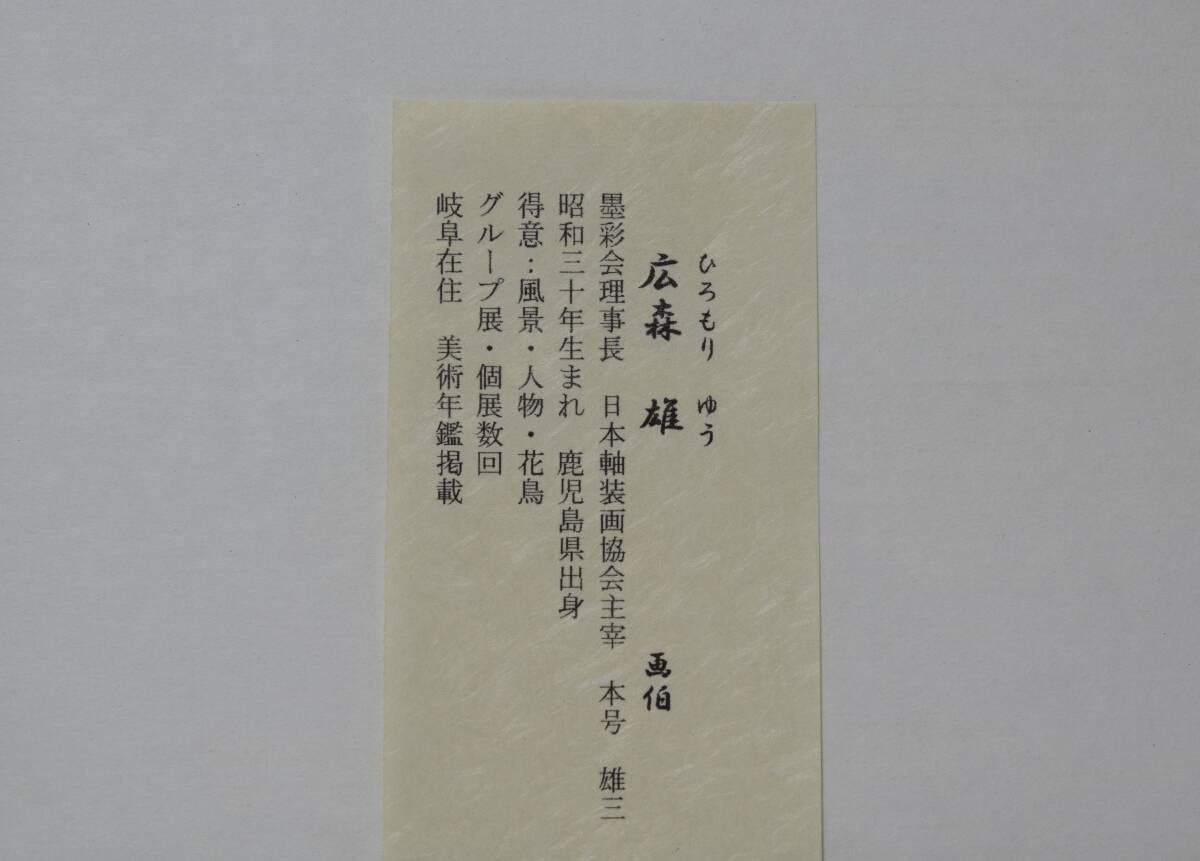 ひろもり ゆう
広森 雄 画伯
墨彩会理事長 日本軸装画協会主宰 本号 雄三
昭和三十年生まれ 鹿児島県出身
得意：風景・人物・花鳥
グループ展・個展数回
岐阜在住 美術年鑑掲載